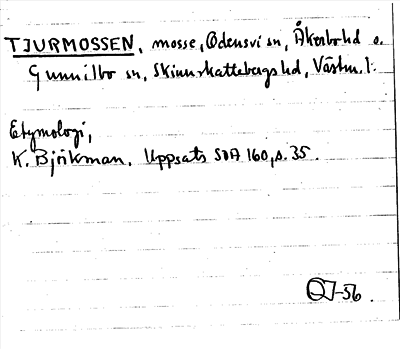 TJURMOSSEN, mosse, Odensvi sn, Åkerbo hd o.
Gunnilbo sn, Skinnskattebergs hd, Västm. l.
Etymologi,
K. Björkman, Uppsats SOA 160, s. 35.
OJ-56.